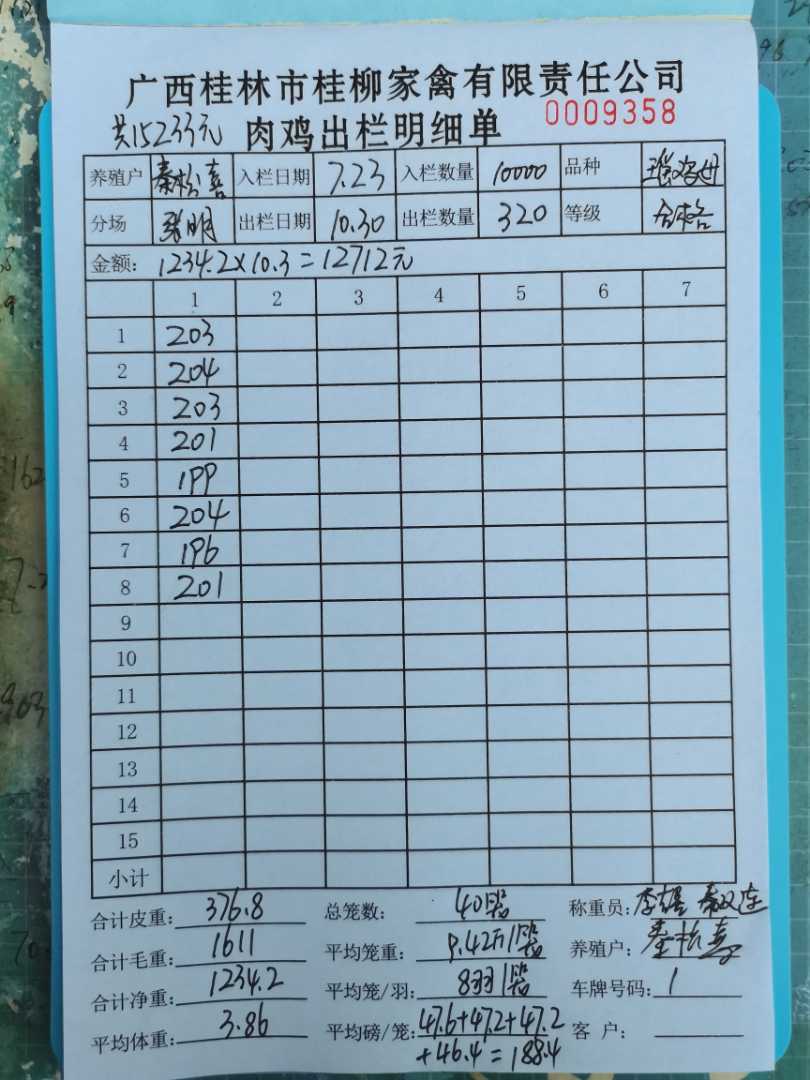 广西桂林市桂柳家禽有限责任公司
共15233元 肉鸡出栏明细单 0009358
养殖户 秦松喜 入栏日期 7.23 入栏数量 10000 品种 瑶鸡母
分场 张明 出栏日期 10.30 出栏数量 320 等级 合格
金额: 1234.2×10.3=12712元
1 2 3 4 5 6 7
1 203
2 204
3 203
4 201
5 199
6 204
7 196
8 201
9
10
11
12
13
14
15
小计
合计皮重: 376.8 总笼数: 40 称重员:
合计毛重: 1611 平均笼重: 9.42 养殖户: 秦松喜
合计净重: 1234.2 平均笼/羽: 8羽 车牌号码: 1
平均体重: 3.86 平均磅/笼: 47.6+47.2+47.2 客户:
+46.4=188.4